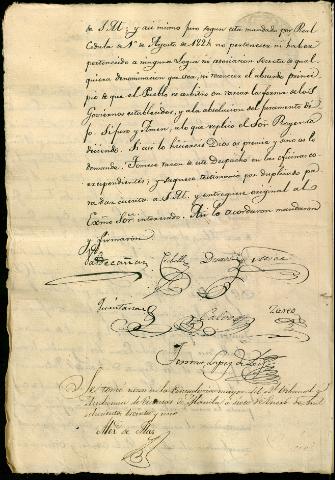 de S.M. y asi mismo juro segun esta mandado por Real
Cedula de 1º de Agosto de 1824 no pertenecer ni haber
pertenecido a ninguna Logia ni asociacion Secreta de qual
quiera denominacion que sea, ni reconocer el absurdo princi
pio de que el Pueblo es arbitro en variar la forma de los
Goviernos establecidos, y a la absolucion del juramento di
jo: Si juro y Amen; a lo que replico el Sor. Regente
diciendo: Si asi lo hiciereis Dios os premie y sino os lo
demande. Tomese razon de este Despacho en las oficinas co
rrespondientes; y saquese testimonio por duplicado pa
ra dar cuenta a S.M. y entreguese original al
Exmo. Sor. interesado. Asi lo acordaron mandaron
y firmaron
Valdecañas
Quintana
Calvo
Fermin Lopez de
Se tomo razon en la Contaduria mayor del Tribunal y
Audiencia de Cuentas de Manila a siete de Enero de mil
ochocientos treinta y uno